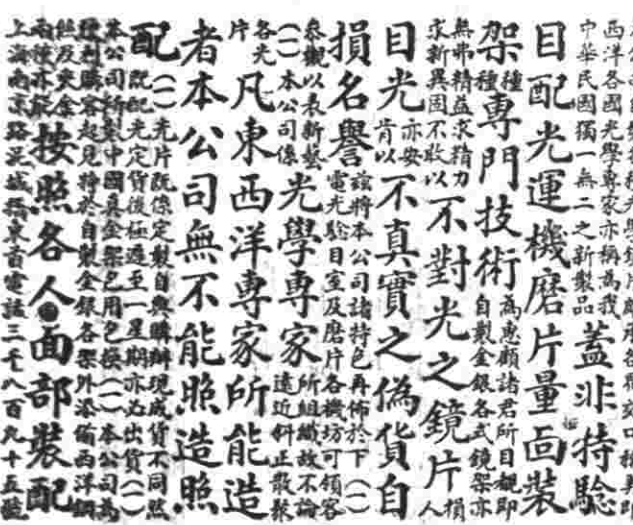 西洋各國光學專家亦稱為我
中華民國獨一無二之新製品
蓋非特驗
目配光運機磨片量面裝
架種種專門技術
為惠顧諸君所目覩即
自製金銀各式鏡架亦
無弗精益求精力
求新異固不敢以
不對光之鏡片
損人
目光
亦安
肯以
不真實之偽貨自
損名譽
茲將本公司諸特色再佈於下(一)
電光驗目室及磨片各機坊可領容
參觀以表新藝
(一)本公司係
光學專家
所組織故不論
遠近斜正散聚
各光
片
凡東西洋專家所能造
者本公司無不能照造照
配
(一)光片既係定製自與購辦現成貨不同照
既配光定貨後極遲至一星期亦必出貨(一)
本公司所製中國真金架包用包換(一)本公司為
便利購客起見特於自製金銀各架外添備西洋鋼
絲及夾金
兩種亦能
按照各人面部裝配
上海南京路泥城橋東首電話三千八百九十五號